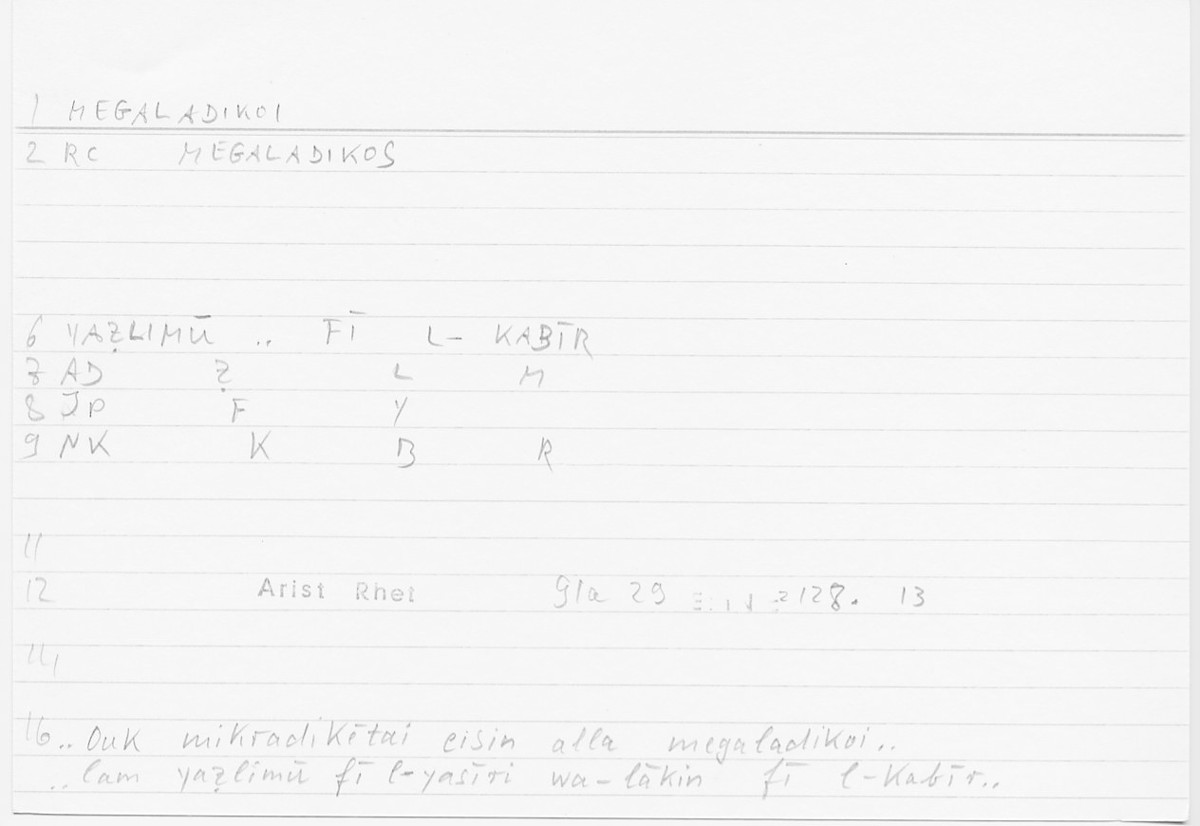 1 MEGALADIKOI
2 RC MEGALADIKOS
6 YAẒLIMŪ .. FĪ L- KABĪR
7 AD Ẓ L M
8 JP F Y
9 NK K B R
11
12 Arist Rhet 91a 29 2128. 13
14
16.. Ouk mikradikētai eisin alla megaladikoi..
..lam yaẓlimū fī l-yasīri wa-lākin fī l-Kabīr..